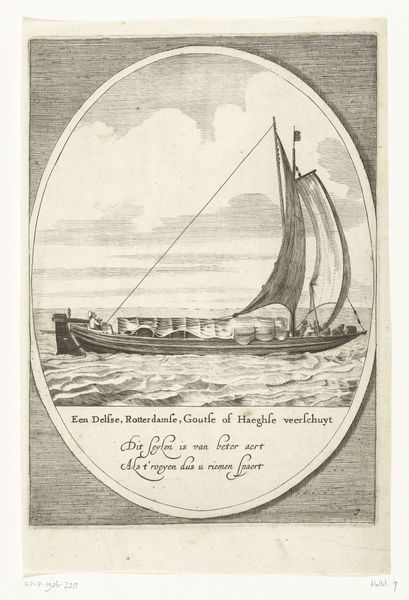 Een Delfse, Rotterdamse, Goutse of Haeghse veerschuyt
Dit seylen is van beter aert
Als t'roeyen dus u riemen spaert
7
RP-P-1926-320
Hollst. 9